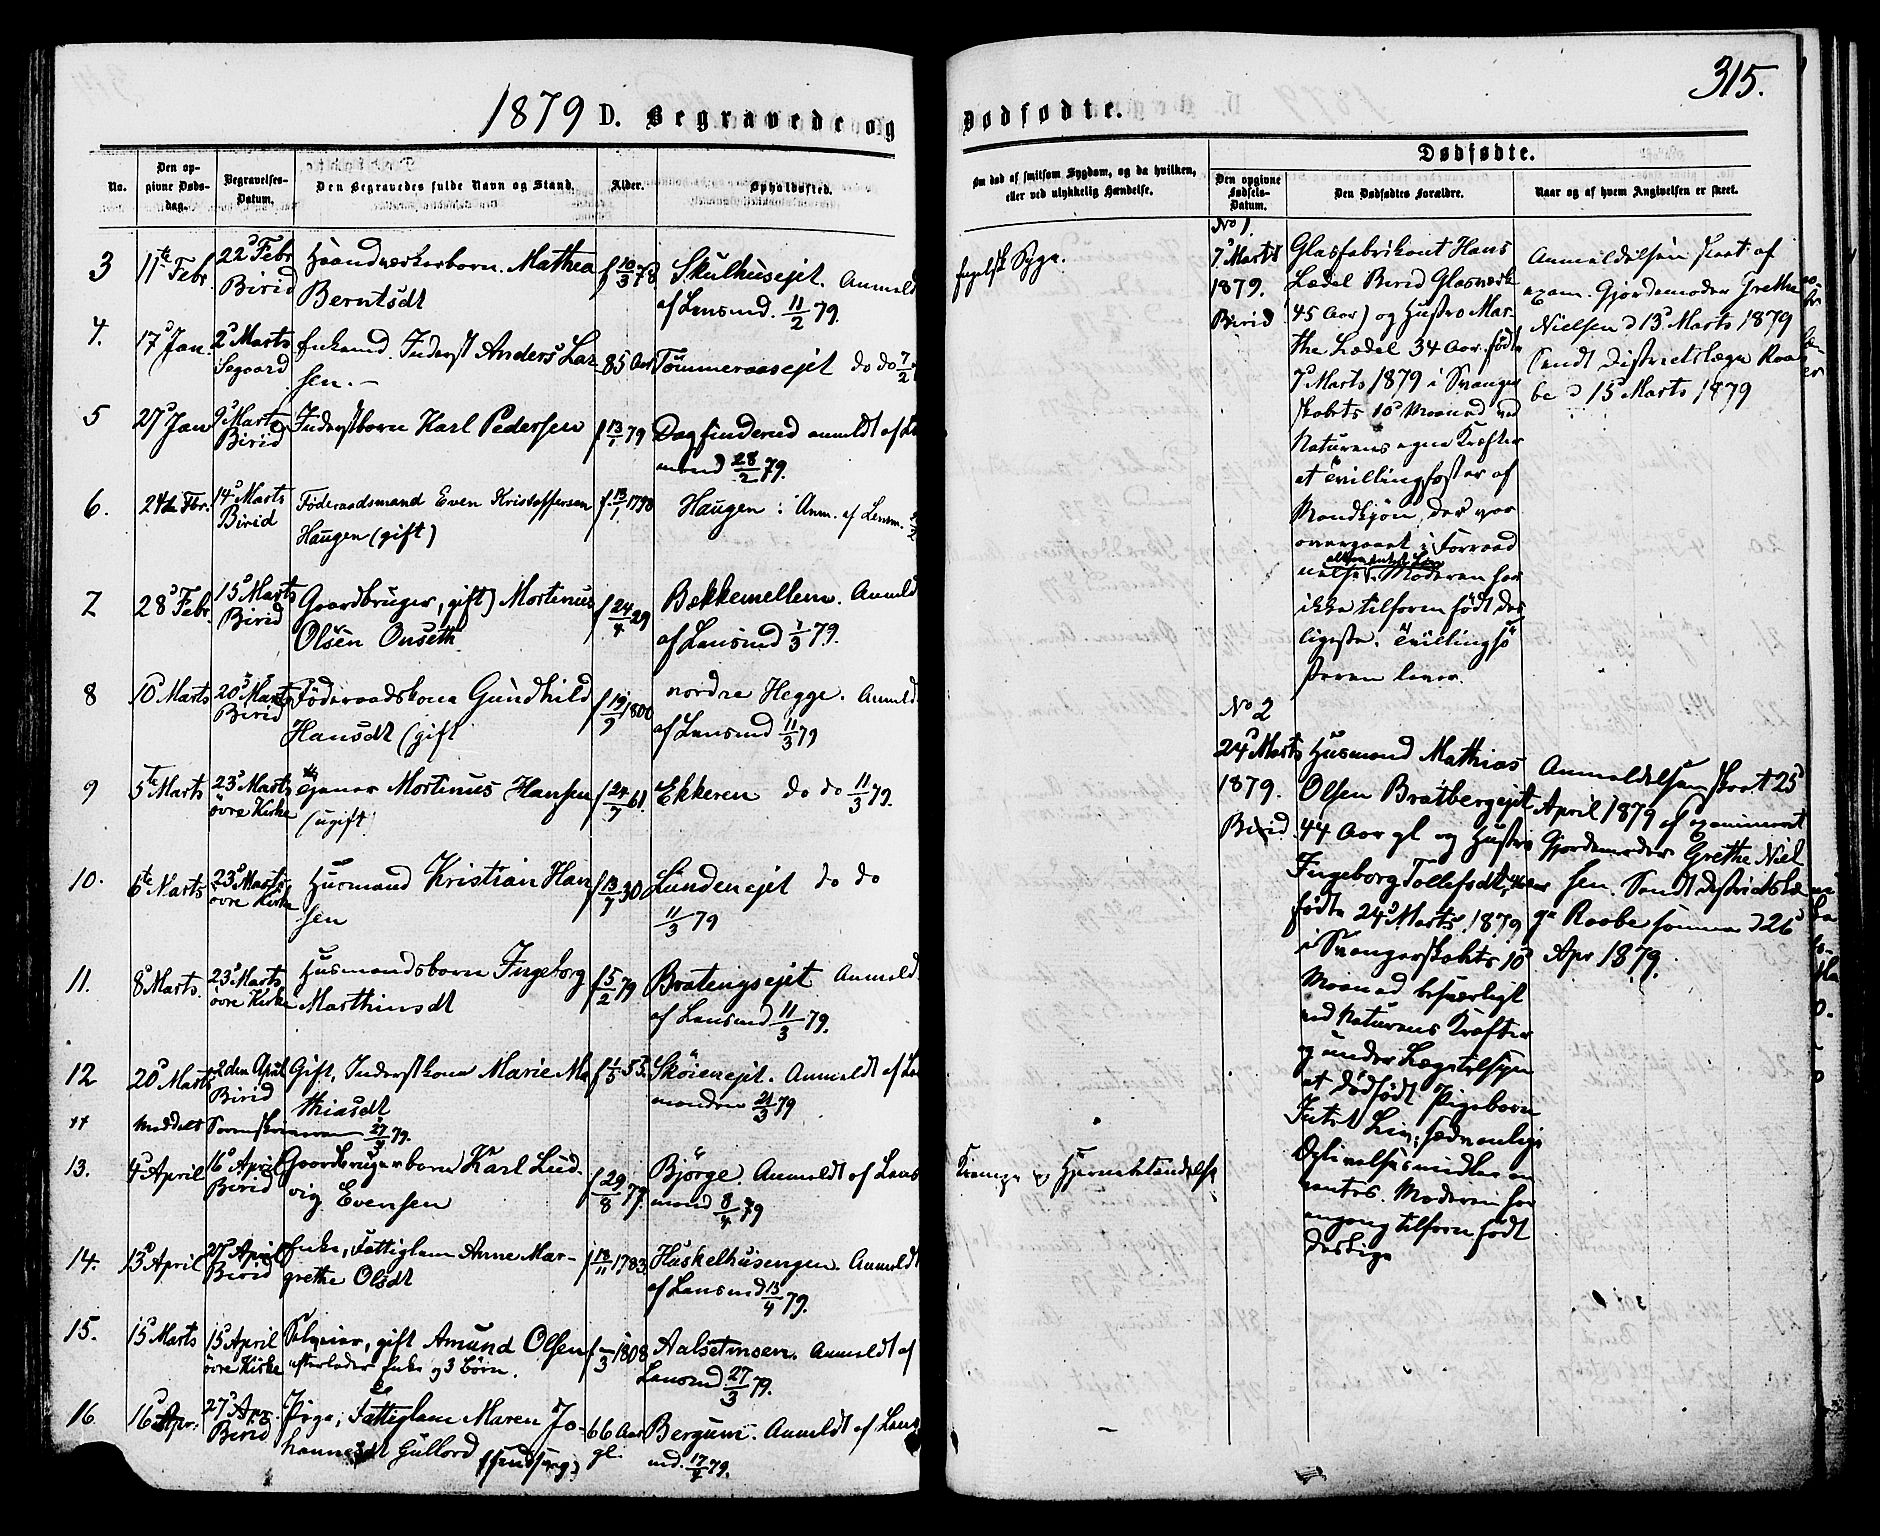 1879 D. Begravede og
No.
Den opgivne Dødsdag.
Begravelses-Datum.
Den Begravedes fulde Navn og Stand.
Alder.
Opholdssted.
3
11te Febr.
22d Febr
Birid
Haandværkerbarn. Mathea
Berntsdt
f 10/3 78
Skulhusejet. Anmeld
af Lensmd. 11/2 79.
4.
17d Jan.
2d Marts
Segaard
Enkemd. Inderst Anders Lar
sen. –
85 Aar
Tömmeraasejet do do 7/2
5
27d Jan
9d Marts
Birid
Inderstbarn Karl Pedersen
f 13/1 79
Dagfinderud anmeldt af Le
mand 28/2 79.
6.
24de Fbr.
14d Marts
Birid
Föderaadsmand Even Kristoffersen
Haugen (gift)
f. 13/1 1798
Haugen : Anm. af Lensm.
7
28d Febr.
15d Marts
Birid
Gaardbruger, gift) Mortinus
Olsen Onseth.
f 24/4 29
Bækkemellem. Anmeld
af Lensmd 1/3 79.
8
10d Marts
20d Marts
Birid
Föderaadskone Gundhild
Hansdt (gift
f 19/9 1800
nordre Hegge. Anmeld
af Lensmd 11/3 79
9
5te Marts
23d Marts
övre Kirke
Tjener Mortinus Hansen
(ugift)
f 24/7 61.
Ekkeren do do 11/3 79.
10.
6te Marts
23d Marts
övre Kirke
Husmand Kristian Han
sen
f 13/7 30
Lundenejet do do
11/3 79
11.
8d Marts.
23d Marts
övre Kirke
Husmandsbarn Ingeborg
Marthinsdt
f 5/2 79
Bratengsejet Anmeld
af Lensmd 11/3 79.
12
20d Marts
2den April
Birid
Gift, Inderstkone Marie Ma
thiasdt
f 1/5 53.
Sköienejet. Anmeldt af Le
manden 21/3 79
Meddelt Sorenskriveren 27/3 79.
13.
4d April
16d April
Birid
Gaardbrugerbarn Karl Lud
vig Evensen
f 29/8 77.
Björge. Anmeldt af Lens
mand 8/4 79
14.
13d April
27d April
Birid
Enke, Fattiglem Anne Mar-
grethe Olsdt
f 18/11 1783
Huskelhusengen. Anmeldt
af Lensmd 15/4 79.
15.
15d Marts
15d April
övre Kirke
Selveier, gift Amund Olsen
efterlader Enke og 3 Börn.
f –/3 1808
Aalsetmoen. Anmeldt af
Lensmd. 27/3 79.
16.
16d Apr.
27d Apr.
Birid
Pige, Fattiglem Maren Jo-
hannesdt Gullord
66 Aar
gl.
Bergum. Anmeldt af Lens
md. 17/4 79.
315.
Dødfødte.
Om død af smitsom Sygdom, og da hvilken,
eller ved ulykkelig Hændelse.
Dødfødte.
Den opgivne Fødsels-Datum.
Den Dødfødtes Forældre.
Naar og af hvem Angivelsen er skeet.
engelsk Syge.
Krampe og Hjernebetændelse
No 1.
7d Marts
1879.
Birid
Glasfabrikant Hans
Lædel Birid Glasværk
45 Aar) og Hustro Mar-
the Lædel 34 Aar. födte
7d Marts 1879 i Svanger
skabets 10d Maaned ved
Naturens egne Kræfter
et Tvillingfoster af
Mandkjön, der var
overgaaet i Forraad
nelse. Moderen har
ikke tilforn födt des
ligeste. Tvillingsö
steren lever.
Anmeldelsen skeet af
exam. Gjordemoder Grethe
Nielsen d 13d Marts 1879
Sendt Distriktslæge Raa
be d 15d Marts 1879
No 2
24d Marts
1879.
Birid.
Husmand Mathias
Olsen Bratbergejet
44 Aar gl og Hustro
Ingeborg Tollefsdt,
födte 24d Marts 1879
i Svangerskabets 10d
Maaned besværligt
ved Naturens Kræfter
og under Lægetilsyn
et dödfödt Pigebarn
Intet Liv, sædvanlige
Oplivelsesmidler an
vendtes. Moderen har
engang tilforn födt
deslige
Anmeldelsen skeet 25d
April 1879 af examineret
Gjordemoder Grethe Niel
sen. Sendt Distriktslæ
ge Raabe samme d 26d
Apr 1879.